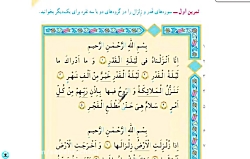 تمرین اول ــ سوره‌های قدر و زلزال را در گروه‌های دو یا سه نفره برای یک‌دیگر بخوانید.
بِسْمِ اللّٰهِ الرَّحْمٰنِ الرَّحیمِ
اِنّا اَنْزَلْناهُ فی لَیْلَةِ الْقَدْرِ ۝ وَ ما اَدْراكَ ما
لَیْلَةُ الْقَدْرِ ۝ لَیْلَةُ الْقَدْرِ خَیْرٌ مِنْ اَلْفِ شَهْرٍ ۝
تَنَزَّلُ الْمَلائِكَةُ وَ الرُّوحُ فیها بِاِذْنِ رَبِّهِمْ مِنْ كُلِّ
اَمْرٍ ۝ سَلامٌ هِیَ حَتّٰی مَطْلَعِ الْفَجْرِ ۝
بِسْمِ اللّٰهِ الرَّحْمٰنِ الرَّحیمِ
اِذا زُلْزِلَتِ الْاَرْضُ زِلْزالَها ۝ وَ اَخْرَجَتِ الْاَرْضُ